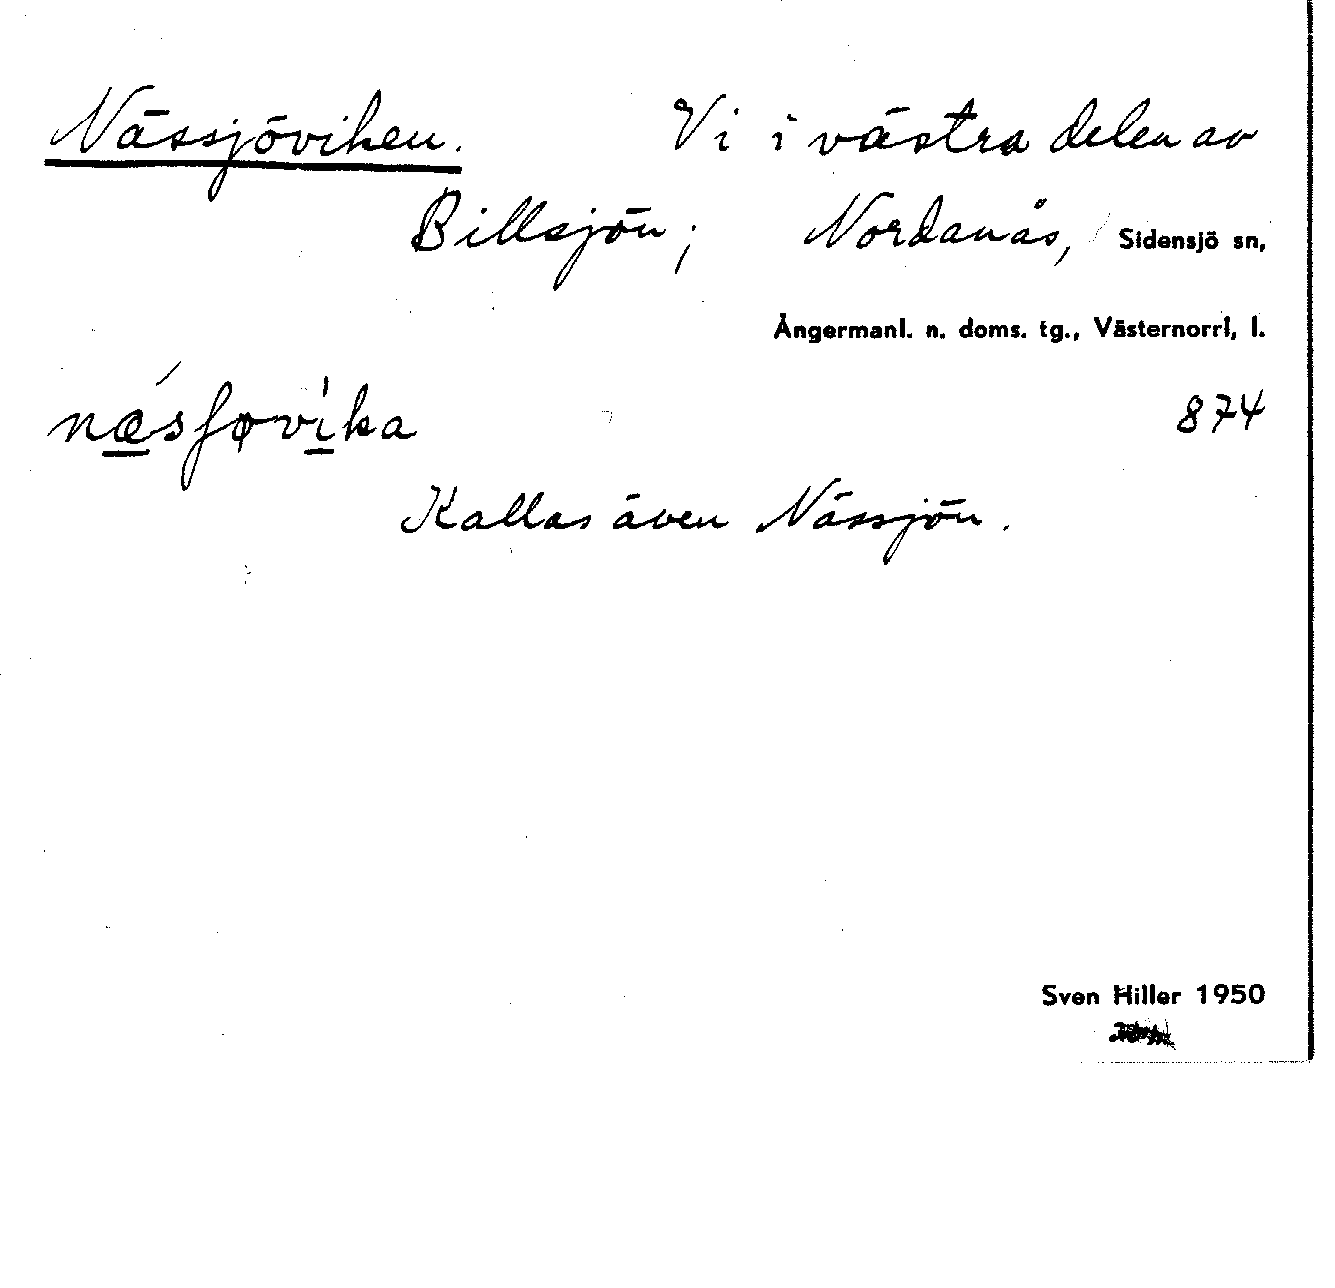 Nässjöviken. Vi i västra delen av
Billsjön; Nordanås, Sidensjö sn,
Ångermanl. n. doms. tg., Västernorrl, l.
nǽ̲sʃøvì̲ka 874
Kallas även Nässjön.
Sven Hiller 1950